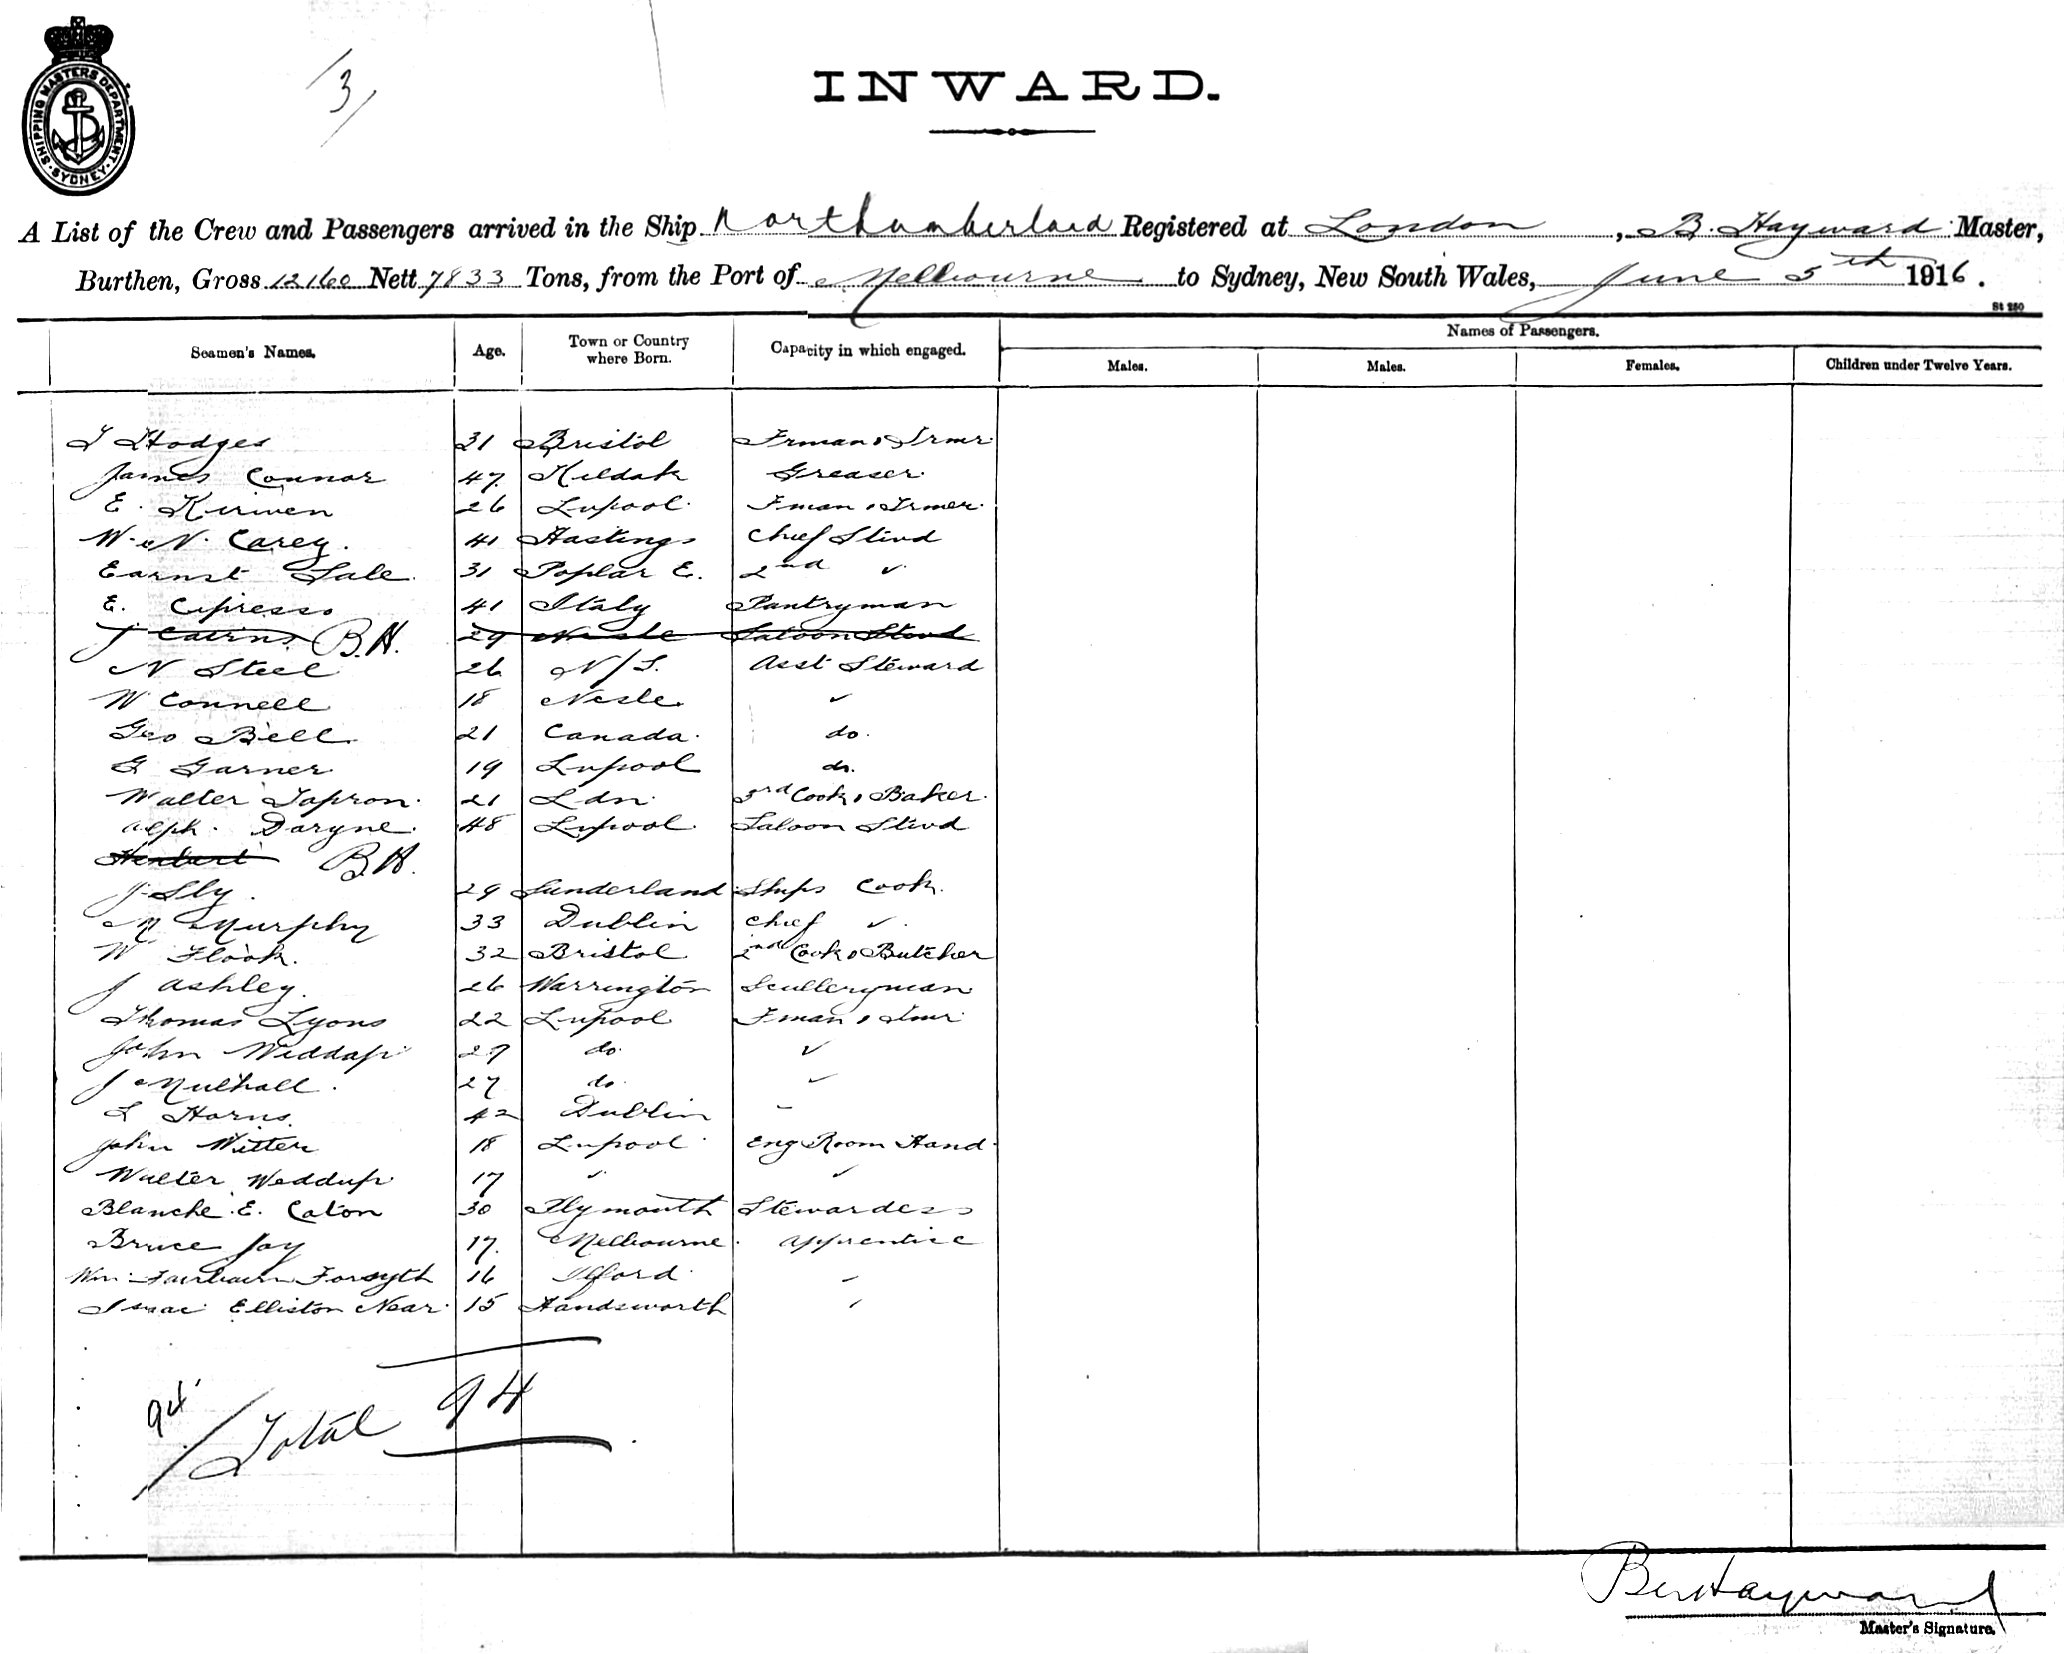 SHIPPING MASTERS DEPARTMENT. SYDNEY.
3
INWARD.
A List of the Crew and Passengers arrived in the Ship Northumberland Registered at London, B. Hayward Master,
Burthen, Gross 12160 Nett 7833 Tons, from the Port of Melbourne to Sydney, New South Wales, June 5th 1916.
St 260
Seamen's Names. Age. Town or Country where Born. Capacity in which engaged. Names of Passengers.
Males. Males. Females. Children under Twelve Years.
T Hodges 31 Bristol Frman & Trmr.
James Connor 47. Kildah Greaser.
E. Kirwen 26 Lvpool. Fman & Trmer.
W. N. Carey. 41 Hastings Chief Stwd
Earnst Sale. 31 Poplar E. 2nd "
E. Cipresso 41 Italy Pantryman
J Cairns B.H. 29 Nesle Saloon Stwd
N Steel 26 N/S. Asst Steward
W Connell 18 Nesle. "
Geo Bell. 21 Canada. do.
G Garner 19 Lvpool do.
Walter Tapron. 21 Ldn. 3rd Cook & Baker.
Alph. Daryne. 48 Lvpool. Saloon Stwd
Herbert B.H.
J. Sly. 29 Sunderland Ships Cook.
M Murphy 33 Dublin Chief "
W Flook. 32 Bristol 2nd Cook & Butcher
J Ashley. 26 Warrington Sculleryman
Thomas Lyons 22 Lvpool Fman & Tmr
John Weddup 29 do. "
J Mulhall. 27 do. "
L Horns. 42 Dublin "
John Witter 18 Lvpool Eng Room Hand.
Walter Weddup 17 " "
Blanche. E. Caton 30 Plymouth Stewardess
Bruce Joy 17. Melbourne. Apprentice
Wm. Fairbairn Forsyth 16 Ilford. "
Isaac Elliston Near. 15 Handsworth "
94
Total 94
Ben Hayward
Master's Signature.